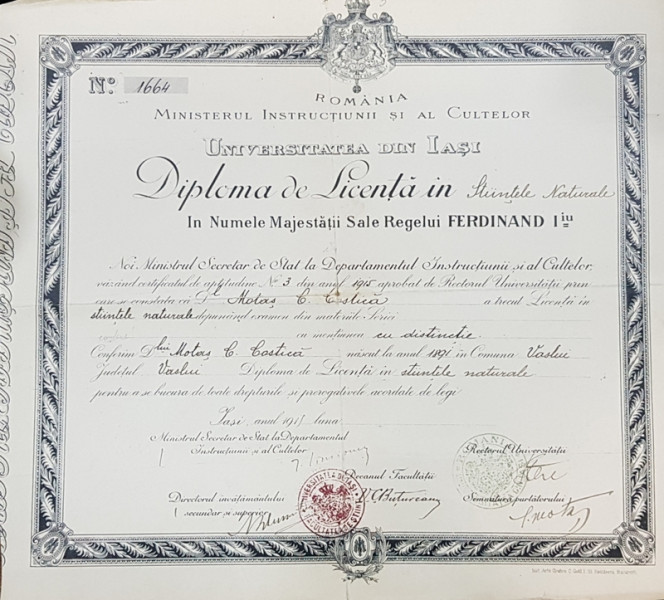 No. 1664
ROMÂNIA
MINISTERUL INSTRUCȚIUNII ȘI AL CULTELOR
UNIVERSITATEA DIN IAȘI
Diploma de Licență in Stiințele Naturale
In Numele Majestății Sale Regelui FERDINAND Iiu
Noi Ministrul Secretar de Stat la Departamentul Instrucțiunii și al Cultelor,
văzând certificatul de aptitudine No 3 din anul 1915 aprobat de Rectorul Universității prin
care se constată că Dl Motaș C. Costică a trecut Licență în
stiințele naturale depunând examen din materiile Seriei
cu mențiunea cu distincție
Conferim Dlui Motaș C. Costică născut la anul 1891 în Comuna Vaslui
Județul Vaslui Diploma de Licență in stiințele naturale
pentru a se bucura de toate drepturile și prerogativele acordate de legi
Iași, anul 191 luna
Ministrul Secretar de Stat la Departamentul
Instrucțiunii și al Cultelor
Rectorul Universității
Decanul Facultății
Directorul învățământului
secundar și superior
Semnătura purtătorului